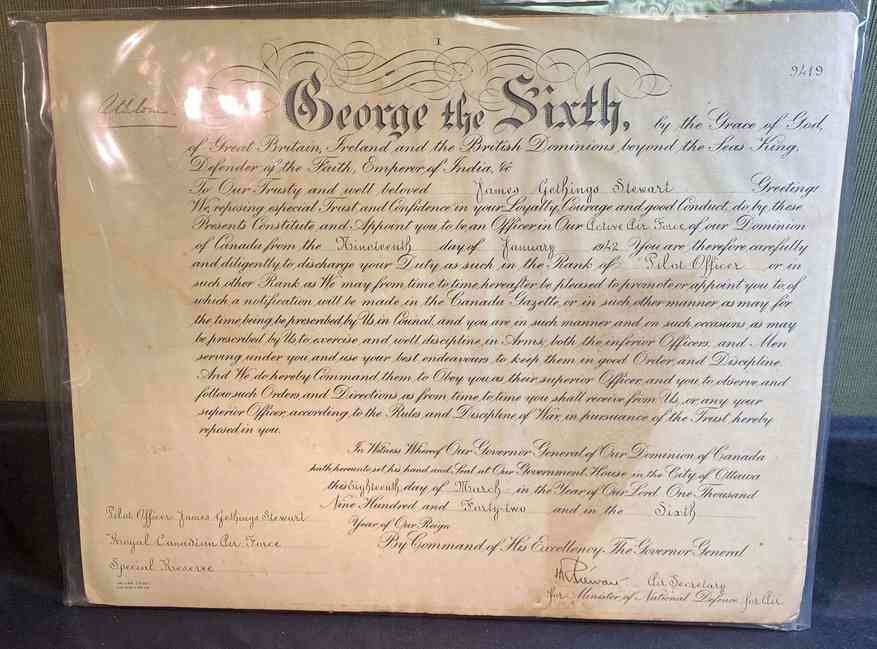 I
9419
George the Sixth, by the Grace of God,
of Great Britain, Ireland and the British Dominions beyond the Seas King,
Defender of the Faith, Emperor of India, &c
To Our Trusty and well beloved James Gethings Stewart Greeting:
We, reposing especial Trust and Confidence in your Loyalty, Courage and good Conduct, do by these
Presents Constitute and Appoint you to be an Officer in Our Active Air Force of our Dominion
of Canada from the Nineteenth day of January 1942 You are therefore carefully
and diligently to discharge your Duty as such in the Rank of Pilot Officer or in
such other Rank as We may from time to time hereafter be pleased to promote or appoint you to, of
which a notification will be made in the Canada Gazette, or in such other manner as may for
the time being be prescribed by Us in Council, and you are in such manner and on such occasions as may
be prescribed by Us to exercise and well discipline in Arms, both the inferior Officers and Men
serving under you and use your best endeavours to keep them in good Order and Discipline.
And We do hereby Command them to Obey you as their superior Officer, and you to observe and
follow such Orders and Directions as from time to time you shall receive from Us, or any your
superior Officer, according to the Rules and Discipline of War, in pursuance of the Trust hereby
reposed in you.
In Witness Whereof Our Governor General of Our Dominion of Canada
hath hereunto set his hand and Seal at Our Government House in the City of Ottawa
this Eighteenth day of March in the Year of Our Lord One Thousand
Nine Hundred and Forty-two and in the Sixth
Year of Our Reign
By Command of His Excellency The Governor General
Pilot Officer James Gethings Stewart
Royal Canadian Air Force
Special Reserve
Air Secretary
for Minister of National Defence for Air